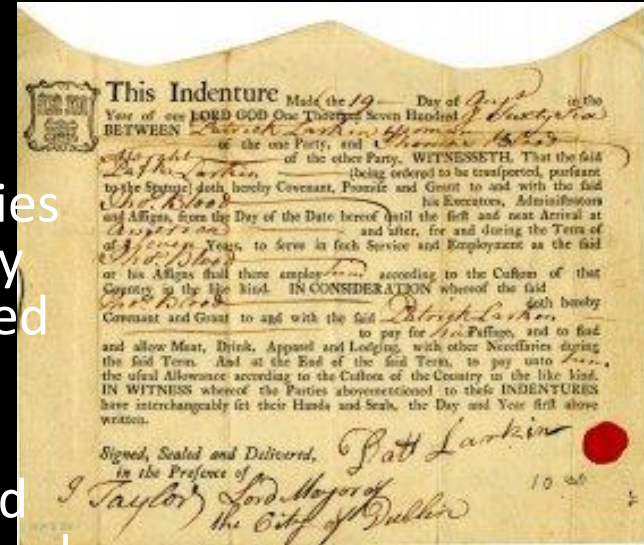 This Indenture Made the 19 Day of Augst in the
Year of our LORD GOD One Thousand Seven Hundred & Sixty Six
BETWEEN Patrick Larkin
of the one Party, and Thomas Blood
of the other Party, WITNESSETH, That the said
Larkin (being ordered to be transported, pursuant
to the Statute) doth hereby Covenant, Promise and Grant to and with the said
Thos. Blood his Executors, Administrators
and Assigns, from the Day of the Date hereof until the first and next Arrival at
and after, for and during the Term of
Seven Years, to serve in such Service and Employment as the said
Thos. Blood
or his Assigns shall there employ him according to the Custom of that
Country in the like kind. IN CONSIDERATION whereof the said
Thos. Blood doth hereby
Covenant and Grant to and with the said Patrick Larkin
to pay for his Passage, and to find
and allow Meat, Drink, Apparel and Lodging, with other Necessaries during
the said Term. And at the End of the said Term, to pay unto him
the usual Allowance according to the Custom of the Country in the like kind.
IN WITNESS whereof the Parties abovementioned to these INDENTURES
have interchangeably set their Hands and Seals, the Day and Year first above
written.
Signed, Sealed and Delivered,
in the Presence of
Patt Larkin
J Taylor Lord Mayor of
the City of Dublin
ies
y
ed
d